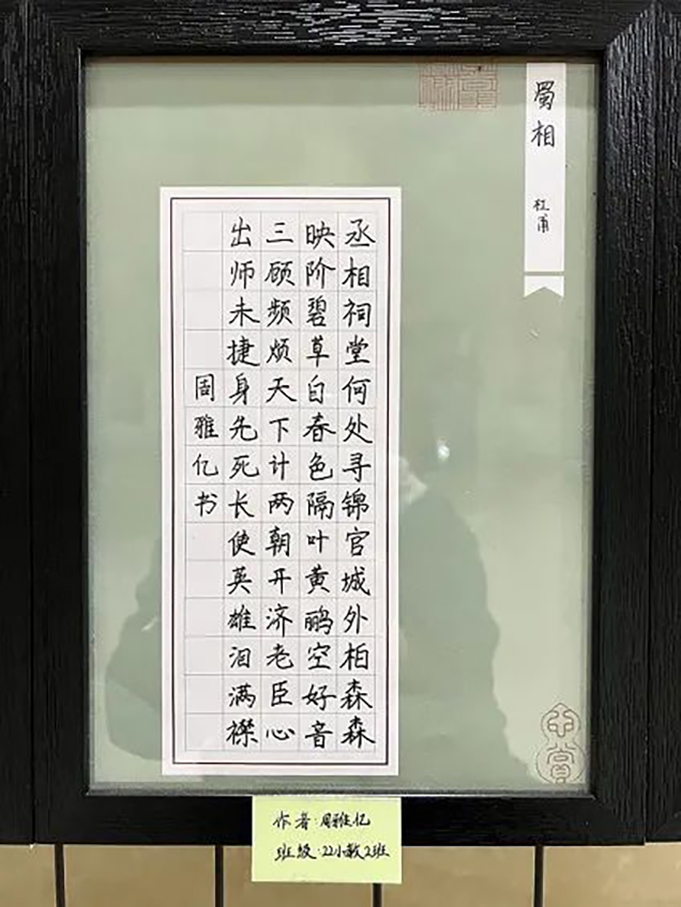 蜀相
杜甫
丞相祠堂何处寻锦官城外柏森森
映阶碧草自春色隔叶黄鹂空好音
三顾频烦天下计两朝开济老臣心
出师未捷身先死长使英雄泪满襟
周雅亿书
作者:周雅亿
班级:22小教2班